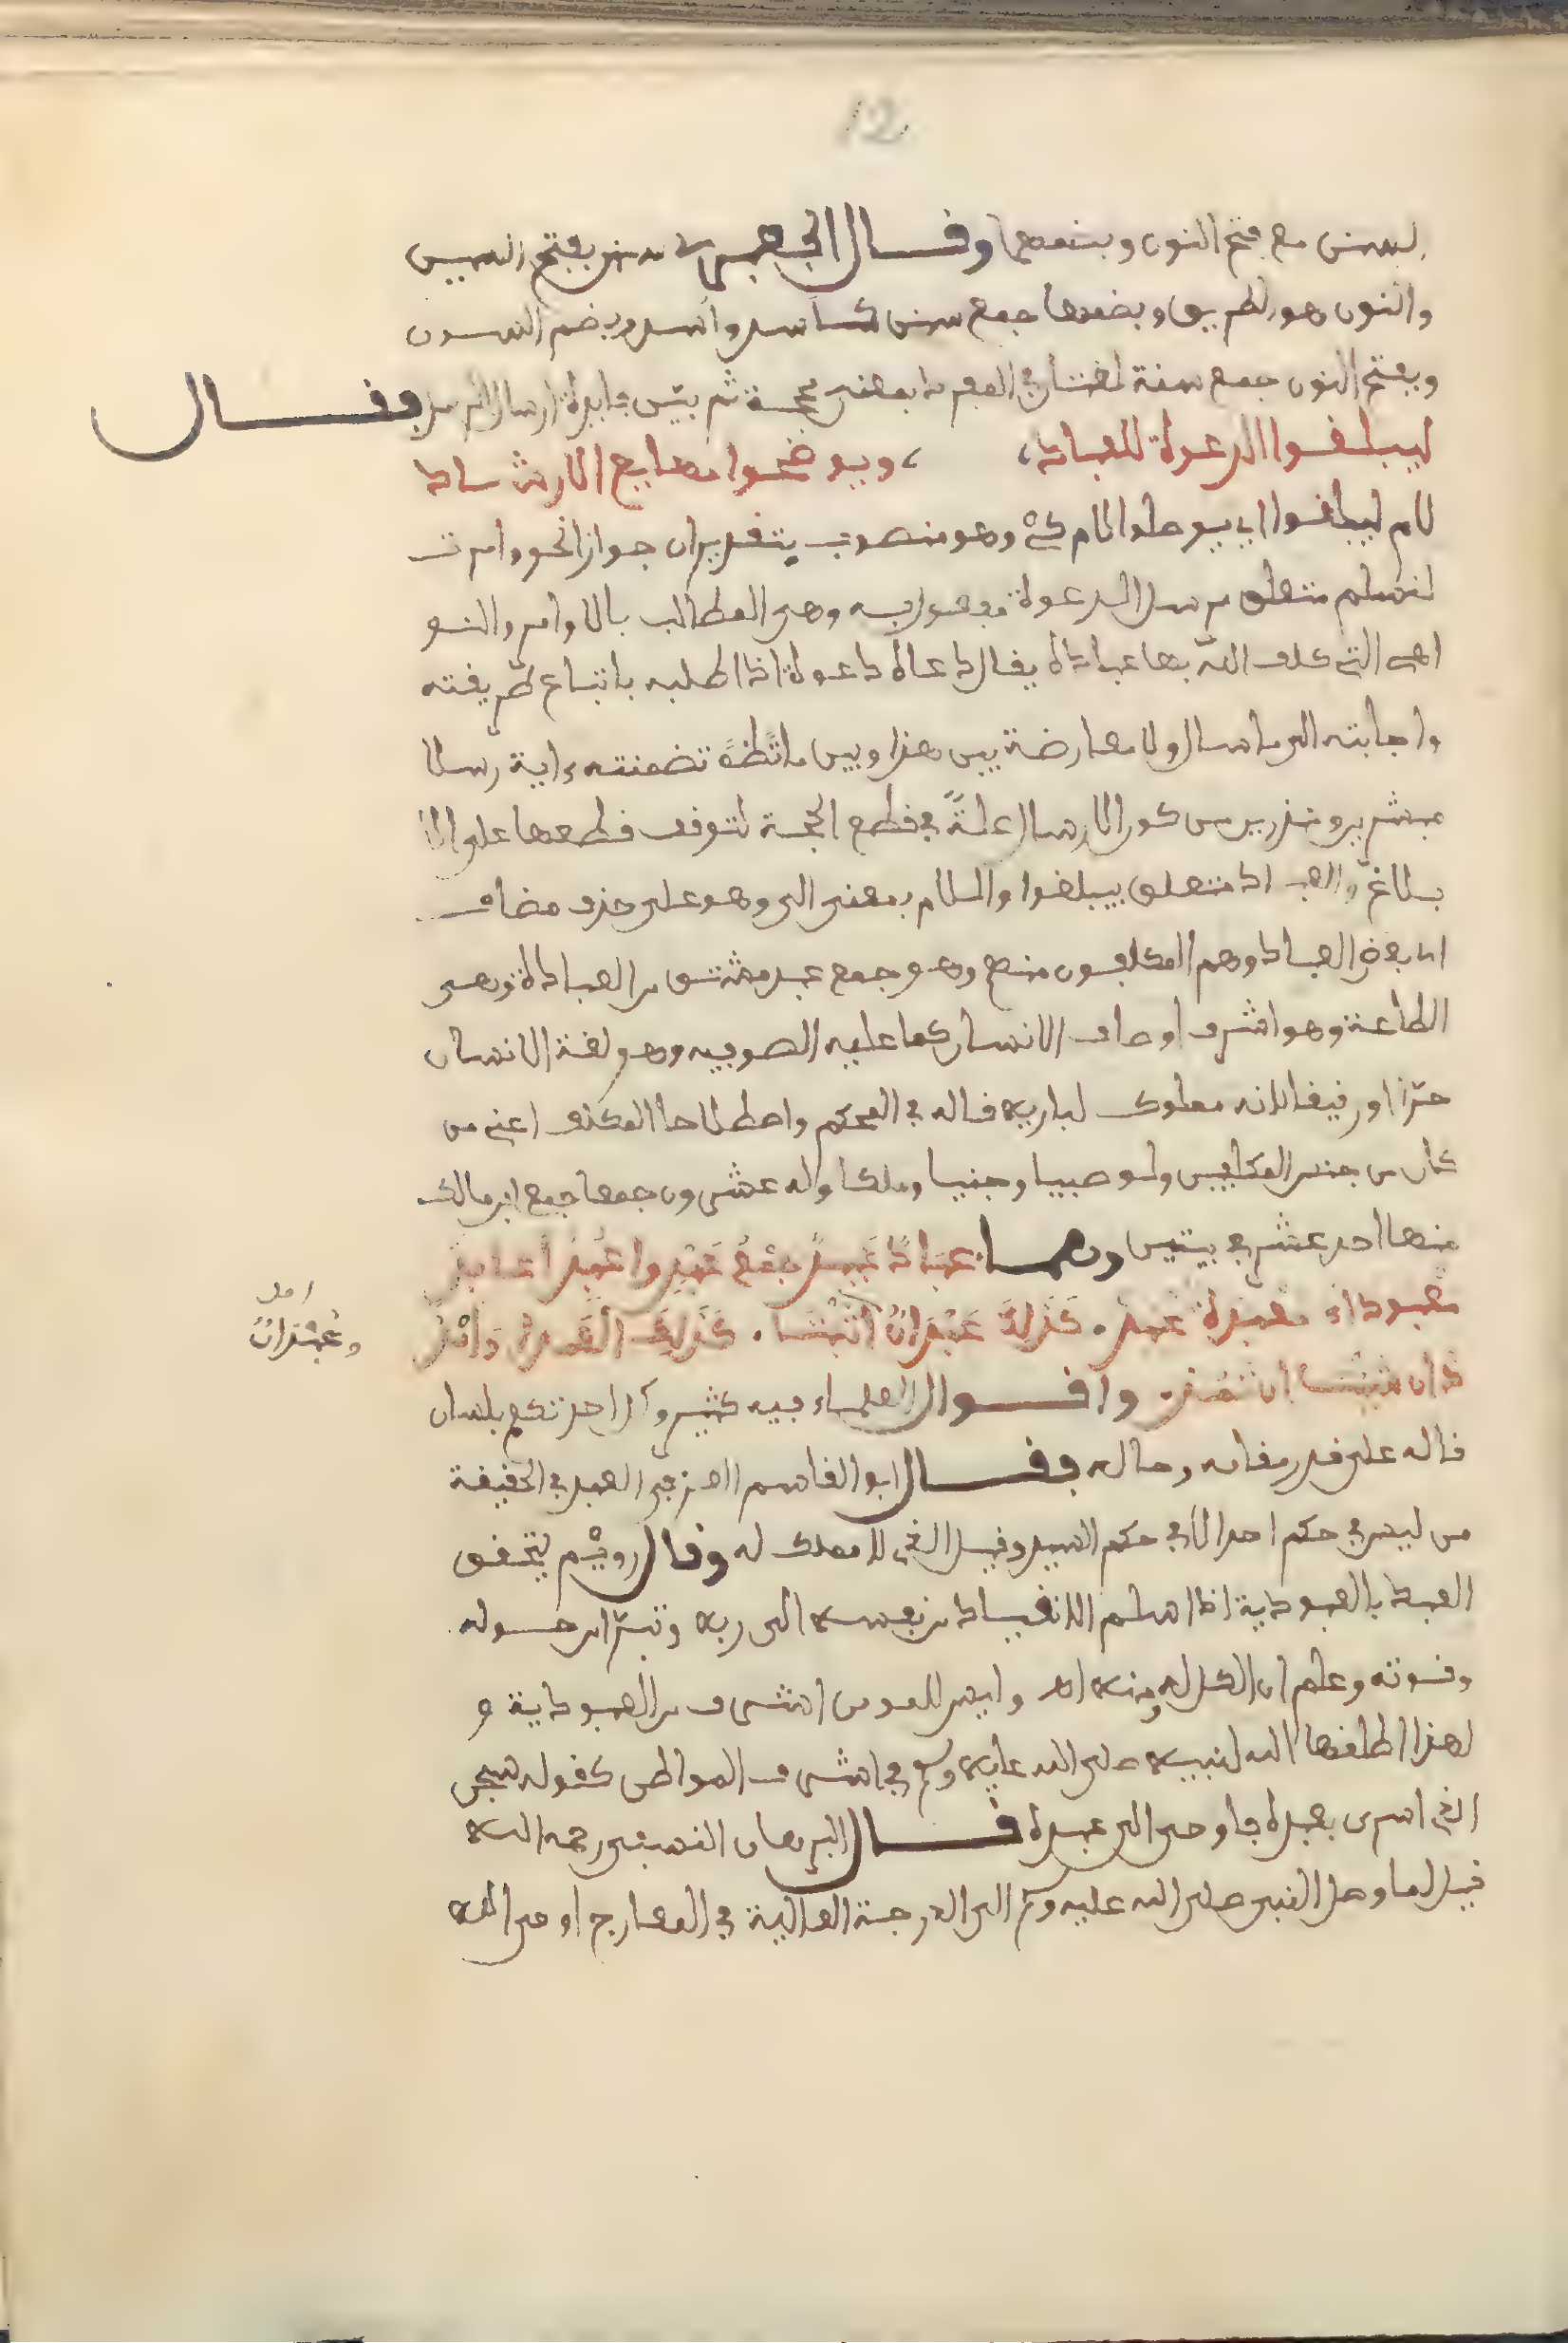 12
السنن مع فتح النون وبضمها وقال الجعبري سنن بفتح السين
والنون هو الطريق وبضمها جمع سنن كأسد وأسد وبضم السين
وبفتح النون جمع سنة لغتان في المفرد بمعنى محجة ثم بين فايدة ارسال الرسل فقال
ليبلغوا الدعوة للعباد، ،ويوضحوا مهايع الارشاد
لام ليبلغوا اي يوصلوا لام كي وهو منصوب بتقدير ان جوازا نحو وامرت
لنسلم متعلق برسل الدعوة مفعول به وهي المطالب بالاوامر والنو
اهي التي كلف الله بها عباده يقال دعاه دعوة اذا طلبه باتباع طريقته
واجابته الى ما سال ولا معارضة بين هذا وبين ما تضمنته ءاية رسلا
مبشرين ومنذرين من كون الارسال علة في قطع الحجة لتوقف قطعها على الا
بلاغ والعباد متعلق بيبلغوا واللام بمعنى الى وهو على حذف مضاف
اي بعض العباد وهم المكلفون منهم وهو جمع عبد مشتق من العبادة وهي
الطاعة وهو اشرف اوصاف الانسان كما عليه الصوفيه وهو لغة الانسان
حرا او رقيقا لانه مملوك لباريه قاله في المحكم واصطلاحا المكلف اعني من
كان من جنس المكلفين ولو صبيا وجنيا وملكا وله عشرون جمعا جمع ابن مالك
منها احد عشر في بيتين وهما عباد عبيد جمع عبد واعبد اعابد
معبوداء معبدة عبد. كذلك عبدان اثبتا. كذلك العبدا وامدد
اصل
وعبدان
ان شئت ان تمد. واقوال العلماء فيه كثيرة كل احد تكلم بلسان
قاله على قدر مقامه وحاله فقال ابو القاسم العبد في الحقيقة
من ليس في حكم احد الا في حكم السيد وقيل الذي لا ملك له وقال رويم يتحقق
العبد بالعبودية اذا اسلم الانقياد من نفسه الى ربه وتبرا من حوله
وقوته وعلم ان الكل له ومنه اه وليس للمومن اشرف من العبودية و
لهذا اطلقها الله لنبيه صلى الله عليه وسلم في اشرف المواطن كقوله سبحن
الذي اسرى بعبده فاوحى الى عبده قال البرهان النسفي رحمه الله
قيل لما وصل النبي صلى الله عليه وسلم الى الدرجة العالية في المعارج اوحى الله